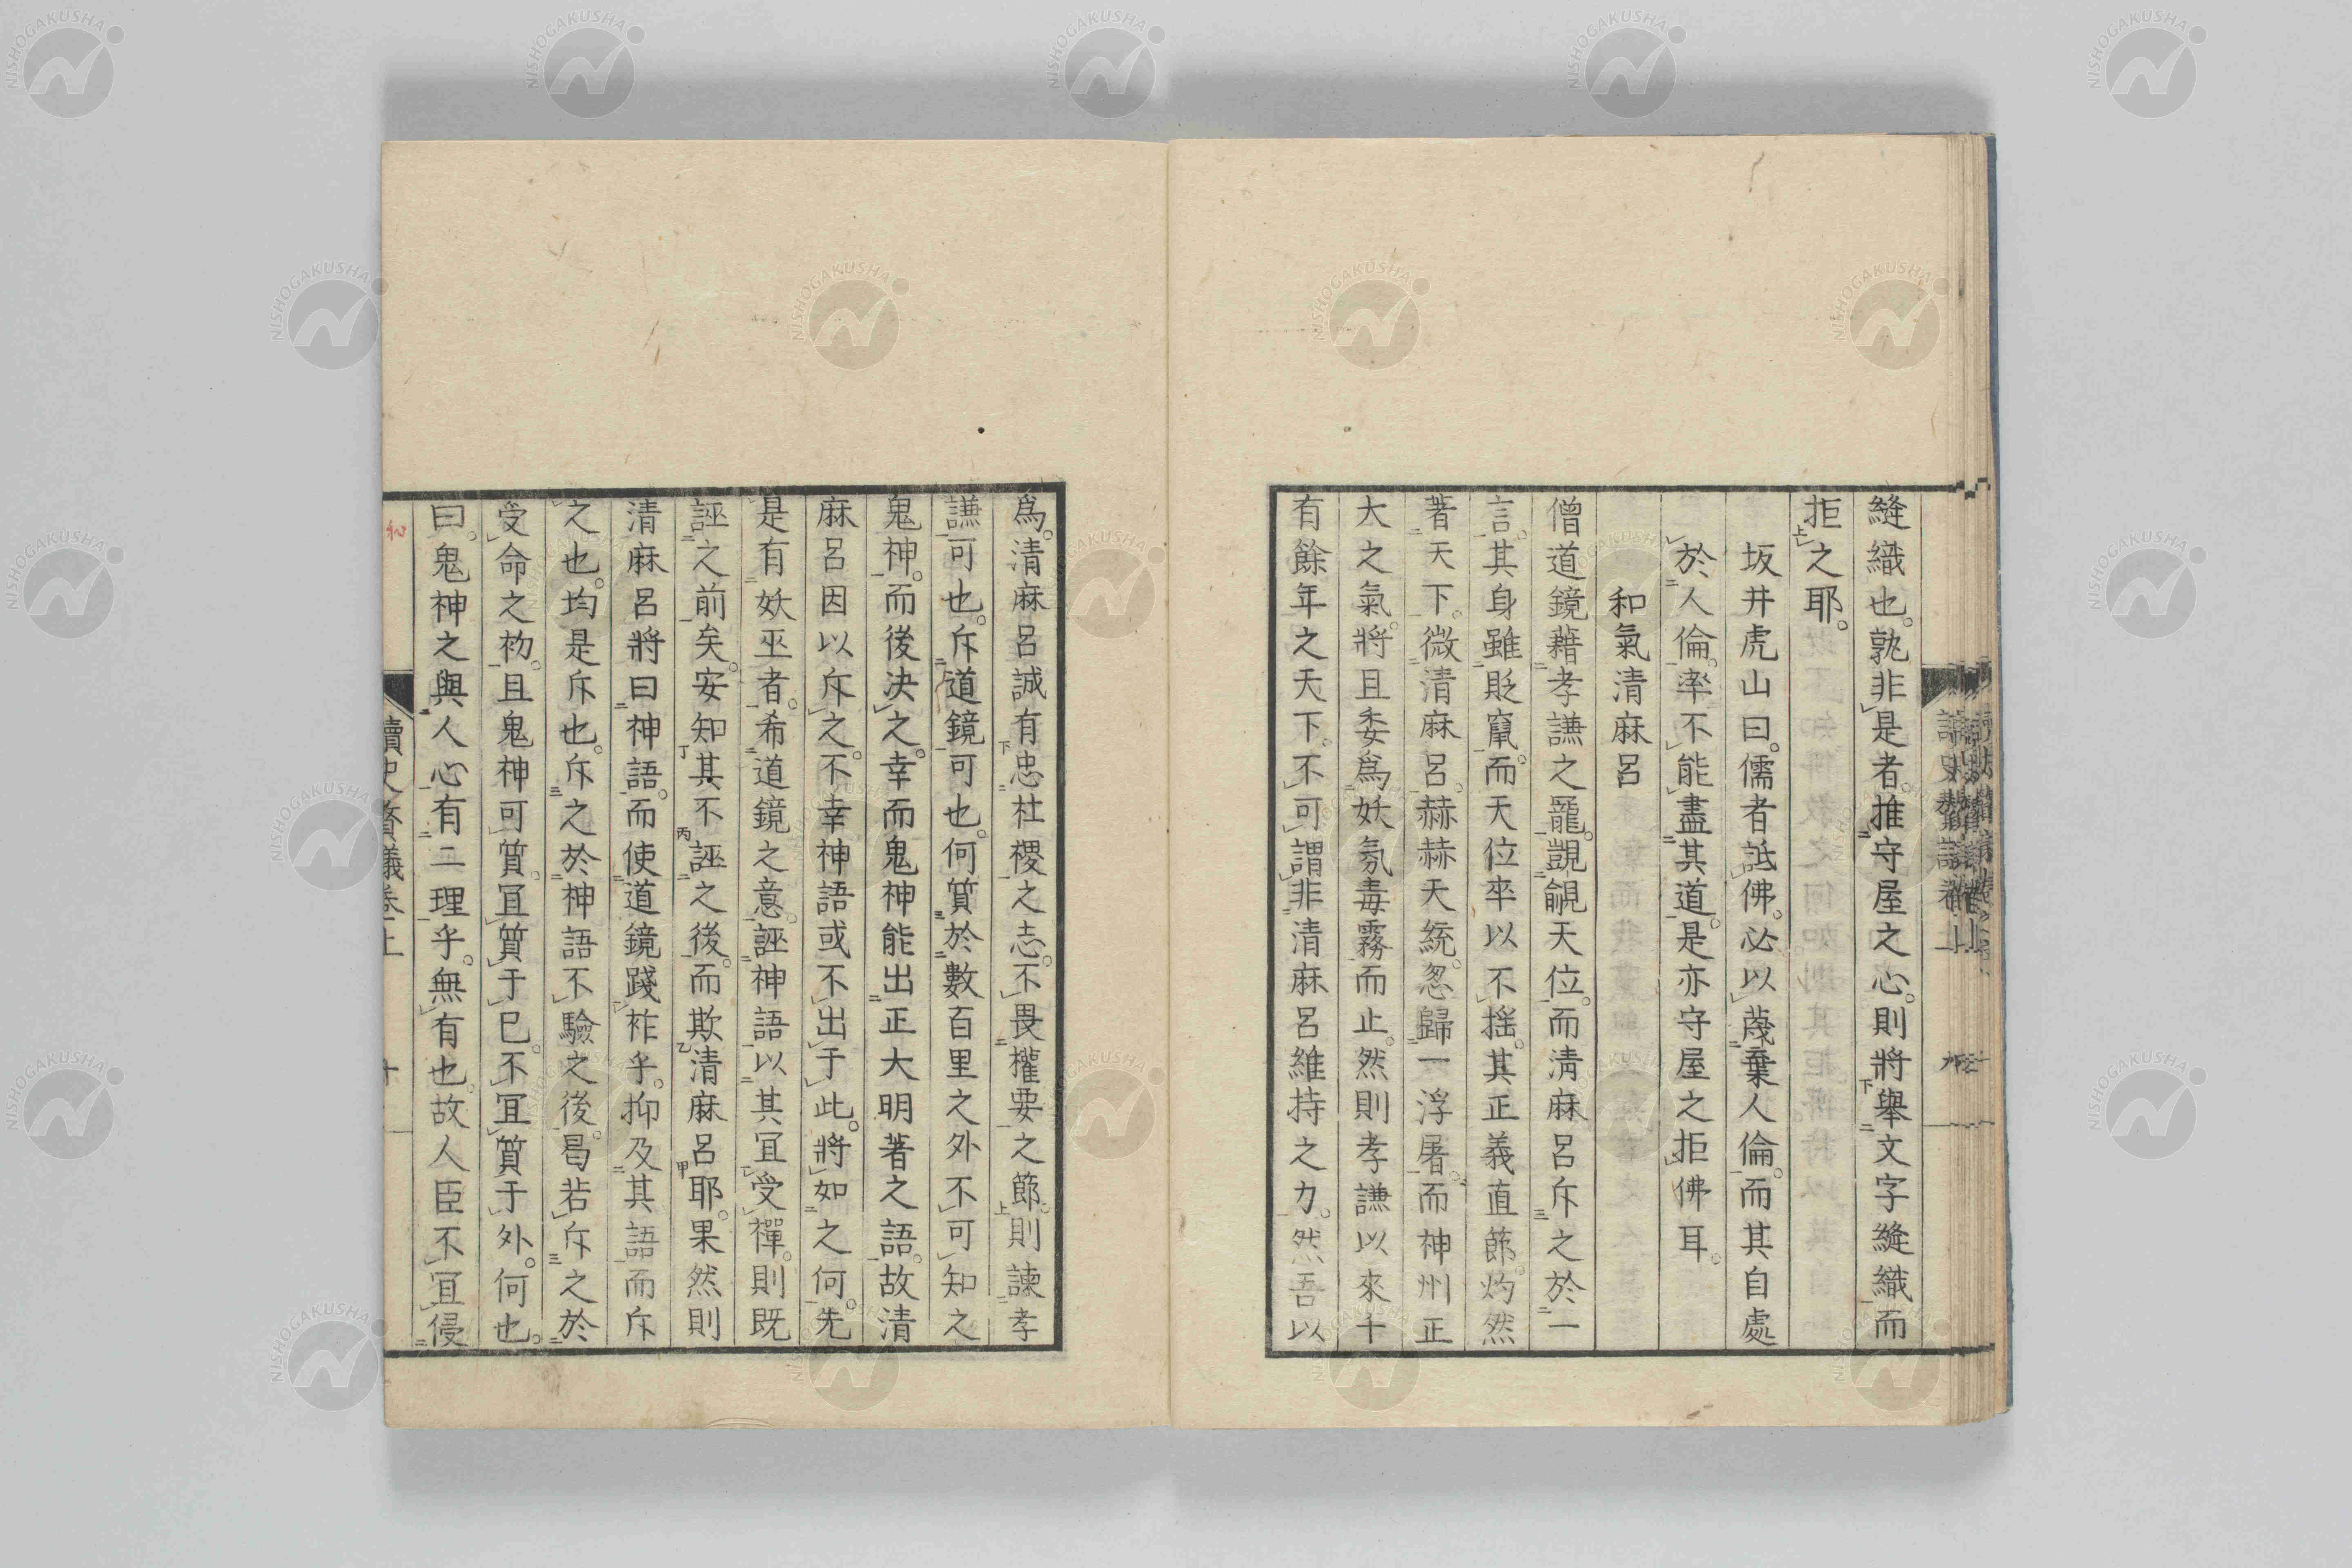 縫織也。孰非是者。推守屋之心。則將舉文字縫織而
拒之耶。
坂井虎山曰。儒者詆佛。必以蔑棄人倫。而其自處
於人倫。率不能盡其道。是亦守屋之拒佛耳。
和氣清麻呂
僧道鏡藉孝謙之寵。覬覦天位。而清麻呂斥之於一
言。其身雖貶竄。而天位卒以不搖。其正義直節。灼然
著天下。微清麻呂。赫赫天統。忽歸一浮屠。而神州正
大之氣。將且委爲妖氛毒霧而止。然則孝謙以來千
有餘年之天下。不可謂非清麻呂維持之力。然吾以
爲。清麻呂誠有忠社稷之志。不畏權要之節。則諫孝
謙可也。斥道鏡可也。何質於數百里之外不可知之
鬼神。而後決之。幸而鬼神能出正大明著之語。故清
麻呂因以斥之。不幸神語或不出于此。將如之何。先
是有妖巫者。希道鏡之意。誣神語以其宜受禪。則既
誣之前矣。安知其不誣之後。而欺清麻呂耶。果然則
清麻呂將曰神語。而使道鏡踐祚乎。抑及其語而斥
之也。均是斥也。斥之於神語不驗之後。曷若斥之於
受命之初。且鬼神可質。宜質于巳。不宜質于外。何也。
曰。鬼神之與人心有二理乎。無有也。故人臣不宜侵
讀史贅議卷上
十